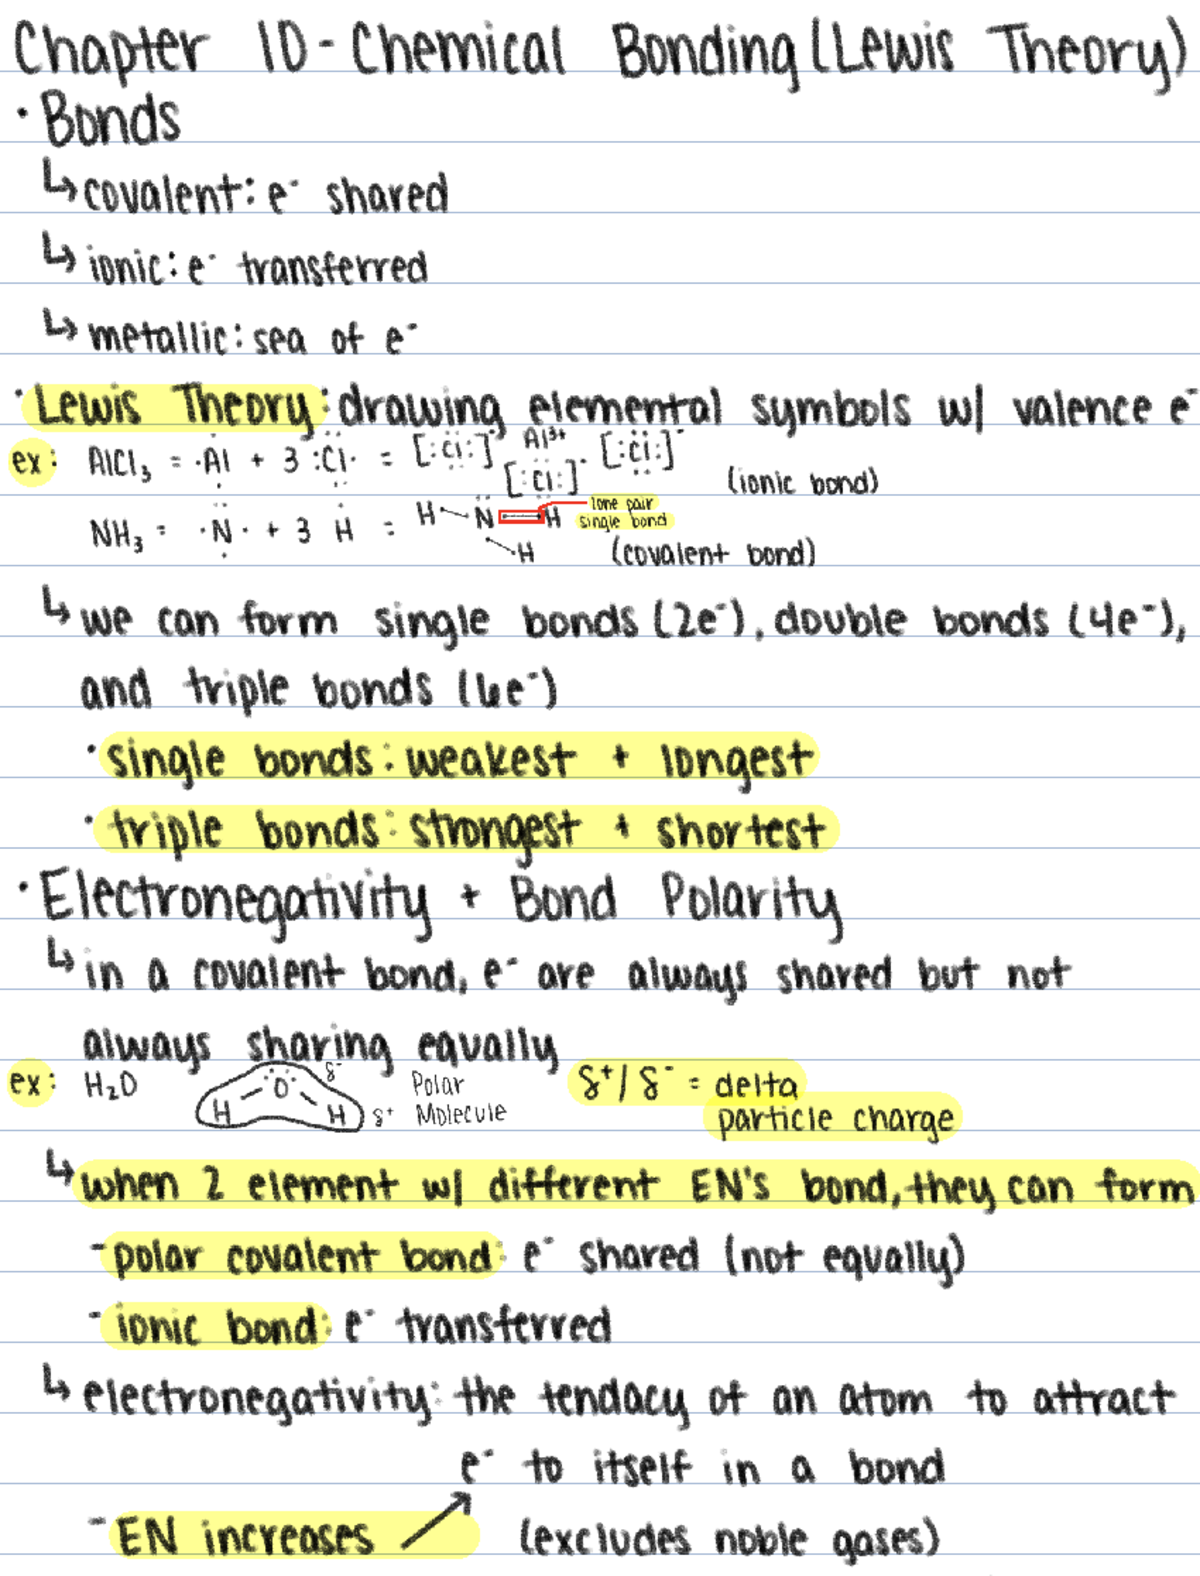 Chapter 10 - Chemical Bonding (Lewis Theory)
· Bonds
↳ covalent: e⁻ shared
↳ ionic: e⁻ transferred
↳ metallic: sea of e⁻
· Lewis Theory: drawing elemental symbols w/ valence e⁻
ex: AlCl₃ = ·Al + 3 :Cl· = [:Cl:]⁻ Al³⁺ [:Cl:]⁻
[:Cl:]⁻ (ionic bond)
NH₃ = ·N· + 3 H = H - N - H lone pair
single bond
H (covalent bond)
↳ we can form single bonds (2e⁻), double bonds (4e⁻),
and triple bonds (6e⁻)
· single bonds: weakest + longest
· triple bonds: strongest + shortest
· Electronegativity + Bond Polarity
↳ in a covalent bond, e⁻ are always shared but not
always sharing equally
ex: H₂O H - O - H δ⁻ δ⁺ Polar Molecule δ⁺/δ⁻ = delta
particle charge
↳ when 2 element w/ different EN's bond, they can form
- polar covalent bond: e⁻ shared (not equally)
- ionic bond: e⁻ transferred
↳ electronegativity: the tendacy of an atom to attract
e⁻ to itself in a bond
- EN increases ↗ (excludes noble gases)